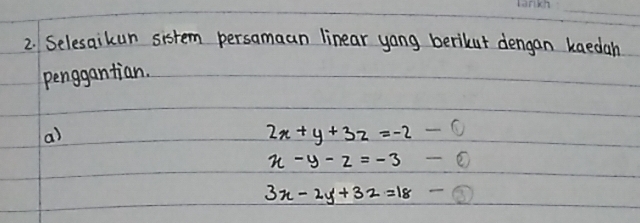 Tarikh
2. Selesaikan sistem persamaan linear yang berikut dengan kaedah
penggantian.
a) 2x + y + 3z = -2 — ①
x - y - z = -3 — ②
3x - 2y + 3z = 18 — ③